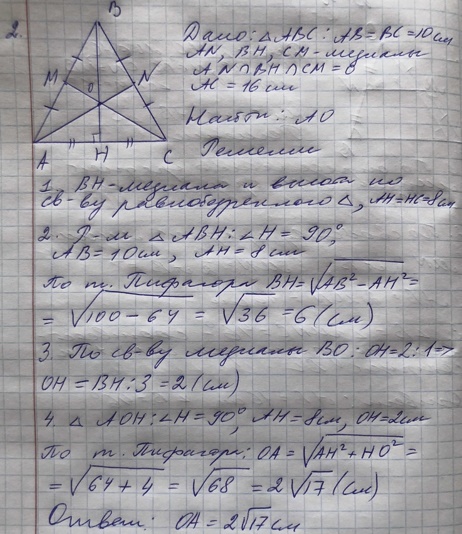 2.
B
M
O
N
A
H
C
Дано: △ABC: AB=BC=10см
AN, BH, CM-медианы
AN∩BH∩CM=O
AC=16см
Найти: AO
Решение
1. BH-медиана и высота по
св-ву равнобедренного △, AH=HC=8см
2. Р-м △ABH: ∠H = 90°,
AB=10см, AH=8см
По т. Пифагора BH=√AB²-AH²=
= √100-64 = √36 =6(см)
3. По св-ву медианы BO:OH=2:1=>
OH=BH:3=2(см)
4. △ AOH: ∠H=90°, AH=8см, OH=2см
По т. Пифагора: OA=√AH²+HO²=
=√64+4 = √68 = 2√17(см)
Ответ: OA=2√17см